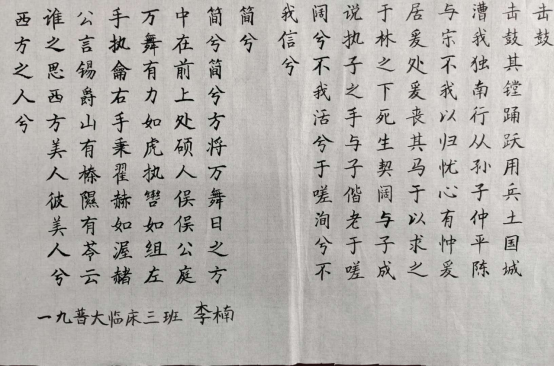 击鼓
击鼓其镗踊跃用兵土国城
漕我独南行从孙子仲平陈
与宋不我以归忧心有忡爰
居爰处爰丧其马于以求之
于林之下死生契阔与子成
说执子之手与子偕老于嗟
阔兮不我活兮于嗟洵兮不
我信兮
简兮
简兮简兮方将万舞日之方
中在前上处硕人俣俣公庭
万舞有力如虎执辔如组左
手执龠右手秉翟赫如渥赭
公言锡爵山有榛隰有苓云
谁之思西方美人彼美人兮
西方之人兮
一九普大临床三班 李楠